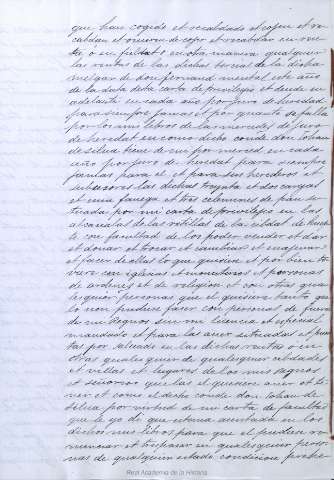 que han cogido et recabdado et cojen et re-
cabdan et ovieren de coger et recabdar en ren-
ta o en fieldat o en otra manera qualquier
las rentas de las dichas tercias de la dicha
melgar de don fernand mental este año
de la data desta carta de previllegio et dende en
adelante en cada año por juro de heredad
para siempre jamas et por quanto se falla
por los mis libros de las mercedes de juro
de heredat en como dicho conde don Johan
de silva tiene de mi por merced en cada
año por juro de heredat para siempre
jamas para el et para sus herederos et
subcesores las dichas treynta et dos cargas
et una fanega et tres celemines de pan si-
tuada por mi carta de previllejo en las
alcavalas de las de la cibdad de
con facultad de los poder vender et dar
et donar et trocar et cambiar et enajenar
et facer dellas lo que quisiere et por bien to-
viere con iglesias et monesterios et personas
de ordenes et de religion et con otras qua-
lesquier personas que el quisiere tanto que
lo non pudiese facer con personas de fuera
de mis Regnos sin mi licencia et especial
mandado et para las aver situadas et pues-
tas por salvado en las dichas rentas o en
otras qualesquier de qualesquier cibdades
et villas et lugares de los mis regnos
et señorios que las el quisiere aver et te-
ner et como el dicho conde don Johan de
silva por virtud de mi carta de facultad
que le yo di que estava asentada en los
dichos mis libros para que el pudiera re-
nunciar et traspasar en qualesquier perso-
nas de qualquier estado condicion prehe-
Real Academia de la Historia